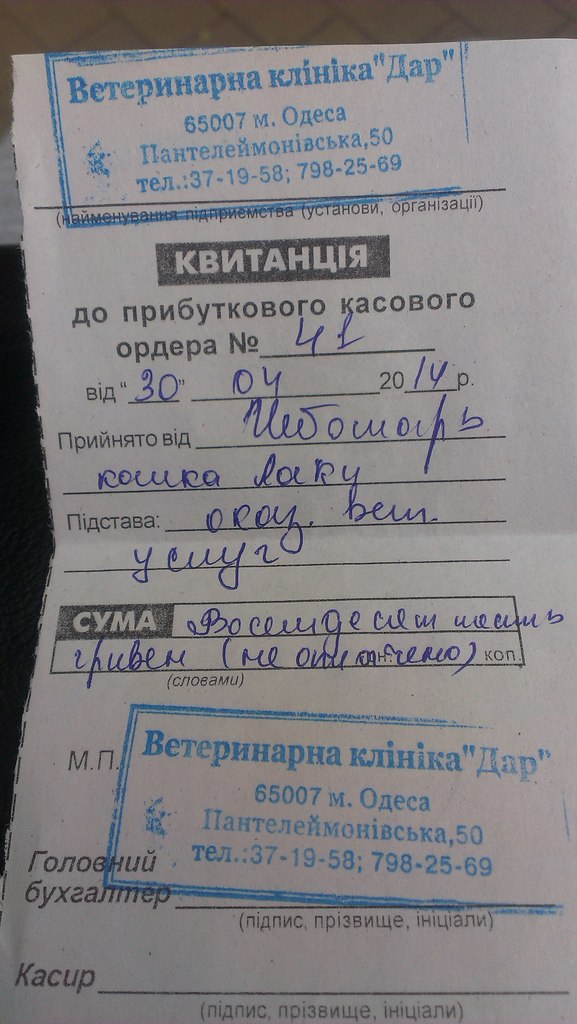 Ветеринарна клініка"Дар"
65007 м. Одеса
Пантелеймонівська,50
тел.:37-19-58; 798-25-69
(найменування підприємства (установи, організації)
КВИТАНЦІЯ
до прибуткового касового
ордера № 41
від "30" 04 2014 р.
Прийнято від Чеботарь
кошка Лаки
Підстава: оказ. вет.
услуг
СУМА Восемдесят шесть
гривен (не оплачено) коп.
(словами)
М.П.
Ветеринарна клініка"Дар"
65007 м. Одеса
Пантелеймонівська,50
тел.:37-19-58; 798-25-69
Головний
бухгалтер
(підпис, прізвище, ініціали)
Касир
(підпис, прізвище, ініціали)